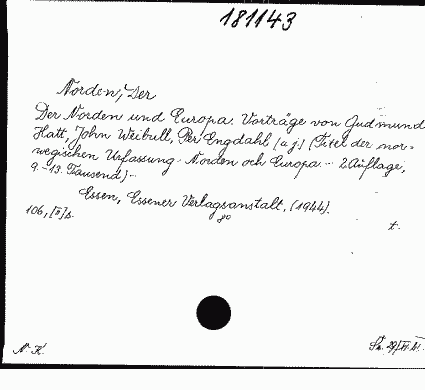 181143
Norden, Der
Der Norden und Europa. Vorträge von Gudmund
Hatt, John Weibull, Per Engdahl [u.a.] (Titel der nor-
wegischen Urfassung: Norden och Europa. - 2. Auflage,
9.-13. Tausend) -
Essen, Essener Verlagsanstalt, (1944).
106, [2] S. 8o
t.
N. K.